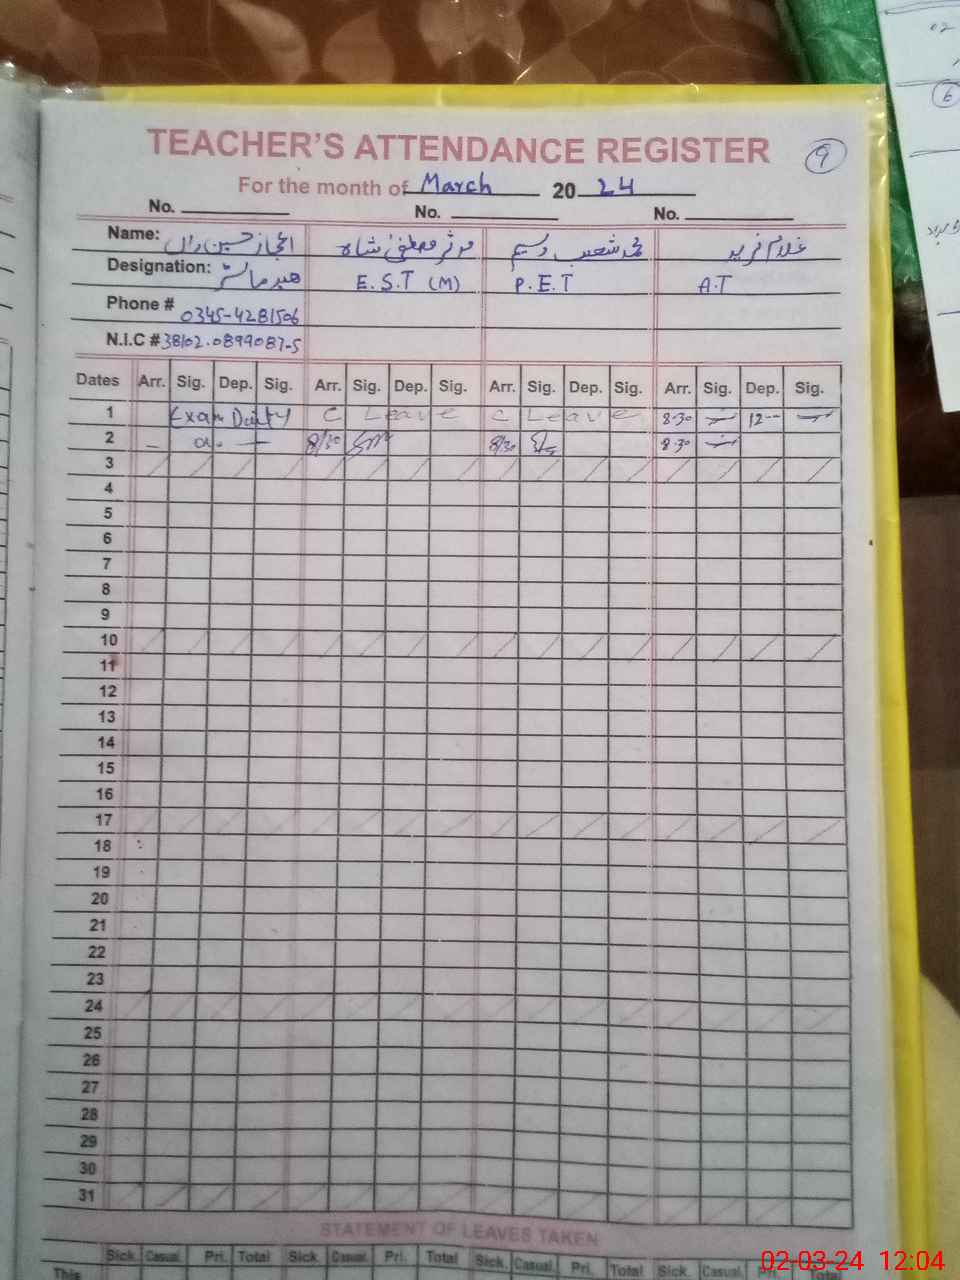 TEACHER'S ATTENDANCE REGISTER 9
For the month of March 2024
No. No. No.
Name: اعجاز حسین مدثر مصطفیٰ شاہ محمد شعیب وسیم غلام فرید
Designation: ہیڈ ماسٹر E.S.T (M) P.E.T A.T
Phone # 0345-4281506
N.I.C # 38102.0899087-5
Dates Arr. Sig. Dep. Sig. Arr. Sig. Dep. Sig. Arr. Sig. Dep. Sig. Arr. Sig. Dep. Sig.
1 Exam Duty C Leave C Leave 8-30 12--
2 8/30 8/30 8.30
3
4
5
6
7
8
9
10
11
12
13
14
15
16
17
18
19
20
21
22
23
24
25
26
27
28
29
30
31
STATEMENT OF LEAVES TAKEN
Sick Casual Pri. Total Sick Casual Pri. Total Sick. Casual. Pri. Total Sick. Casual. Pri. Total
This
02-03-24 12:04
02
6